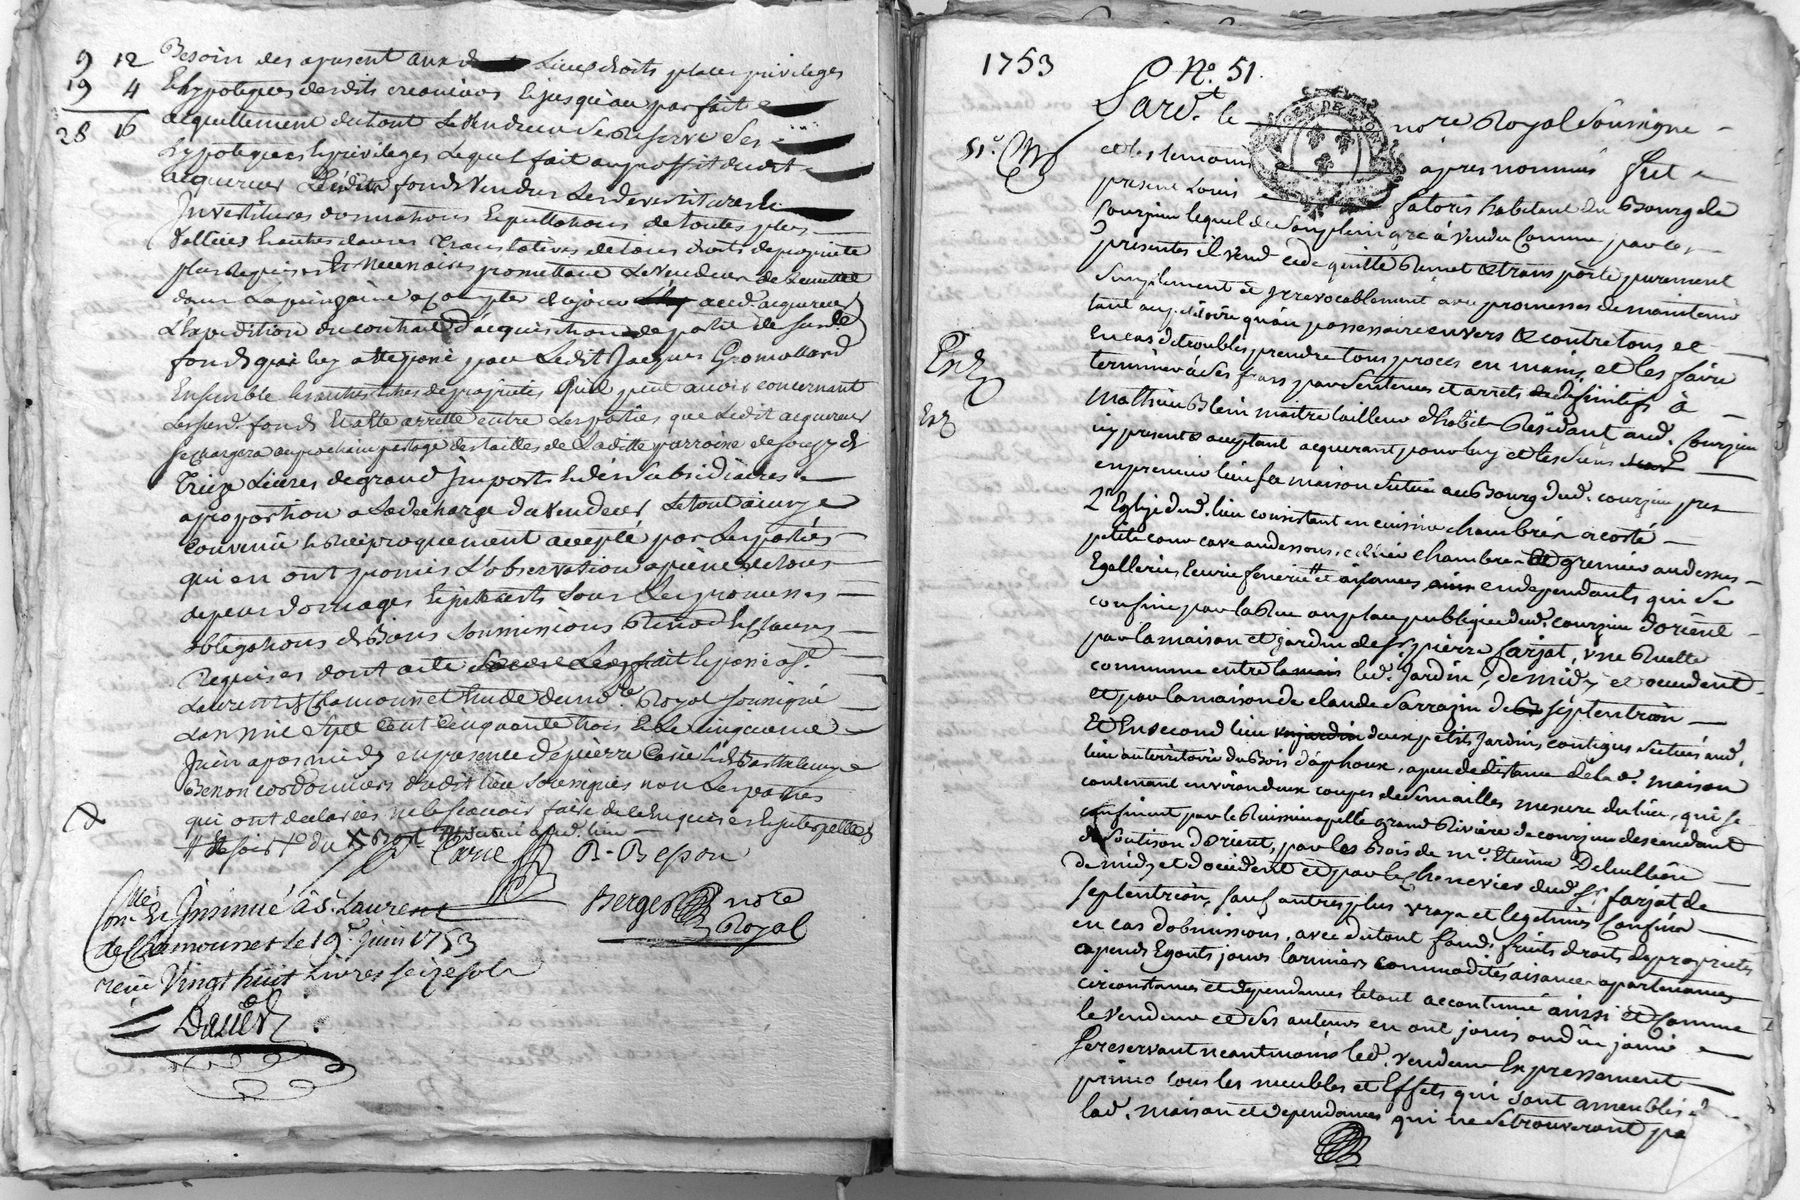 9 12
19 4
28 16
Besoin des a present aux d Lieux droits places privileges
Ehypoteques desdits creanciers Ejusqu'au parfait
acquittement dutout Levendeur Se Reserve Ses
hypoteques Eprivileges Lequel fait auproffit dudit
acquereur desdits fonds Vendus Les devestitures
Investitures Equittations de toutes plus
Valleües hautes clauses translatives de tous droits deproprieté
plus Requises Et Necessaires promettant Levendeur de Remettre
dans Laquinzaine a Compter de cejour aud. acquereur
L'Expedition ducontrat d'acquisition de partie de Sesdits
fonds qui luy a Eté passé par Ledit Jacques Gromollard
Ensemble les autres titres de proprietés Quil peut avoir concernant
Lesdits fonds Et a Eté arretté entre Lesparties que Ledit acquereur
Se chargera auprochain partage des tailles de Ladette parroisse de Souzy de
Treize Livres degrand Import Et des Subsidiaires
aproportion a La decharge du Vendeur Le tout ainsy
Convenu Et Reciproquement accepté par Lesparties
qui en ont promis L'observation apeine de tous
depens domages Eintérests Sous Les promesses
obligations de Biens Soumissions Renon. Et clauses
Requises dont acte fait Epassé a St.
Laurent de Chamousset Etude dud. nore. Royal Soussigné
L'an mil Sept Cent Cinquante trois Et Le Cinquieme
Juin apres midy en presence de pierre Carie Et de Barthelemy
Besson cordonniers dudit lieu Soussignés non Les parties
qui ont declarées ne le Scavoir faire de ce Enquises Einterpellées
Carie B. Besson
Berger nore
Royal
Con.lé Et Insinué à St. Laurent
de Chamousset le 19e. Juin 1753
reçu Vingt huit Livres seize sols
1753
No. 51.
Pard.t le nore Royal Soussigné
51.e
et les temoins apres nommés fut
present Louis fatoris habitant du Bourg de
Courzieu lequel de Son plein gré à vendu Comme par ces
presentes il vend cede quitte Remet & transporte purement
Simplement et Irrevocablement avec promesses de maintenir
tant aupetitoire qu'au possessoire envers & contre tous et
Encas de troubles prendre tous proces en mains et les faire
terminer à Ses frais par Sentences et arrets definitifs à
Mathieu Blein maitre tailleur d'habits Residant aud. Courzieu
icy present & acceptant acquerant pour luy et les Siens
enpremier lieu Sa maison Située au Bourg dud. courzieu pres
L'Eglize dud. lieu consistant en cuisine chambre a coté
petite cour cave audessous cellier chambre & grenier audessus
Egalleries Ecurie feniere et aisances independants qui Se
confine par la Rue ou place publique dud. courzieu d'orient
par la maison et jardin de Sr. pierre farjat, une Ruelle
commune entre led. Jardin, de midy et occident
et par la maison de claude Sarrazin de Septentrion
Et Ensecond lieu deux petits Jardins contigus Situés aud.
lieu auterritoire du Bois d'aghoux, a peu de distance de la d. maison
contenant environ deux coupes de Semailles mesure du lieu, qui Se
confinent par le Ruisseau apellé grand Riviere de courzieu descendant
d'orient, par les Bois de me. Etienne
de midy et d'occident et par le Chenevier dud. Sr. farjat de
Septentrion, Sauf autres plus vrays et legitimes Confins
en cas d'obmissions, avec du tout fonds fruits droits de proprietés
apends Egouts jours larmiers commodités aisances apartenances
circonstances et dependances le tout accoutumé ainsi et comme
le vendeur et Ses auteurs en ont jouis ou dû en jouir
Se reservant neantmoins led. vendeur Expressement
primo tous les meubles et Effets qui Sont ameublis
lad. maison et dependances qui ne Se trouveront pa